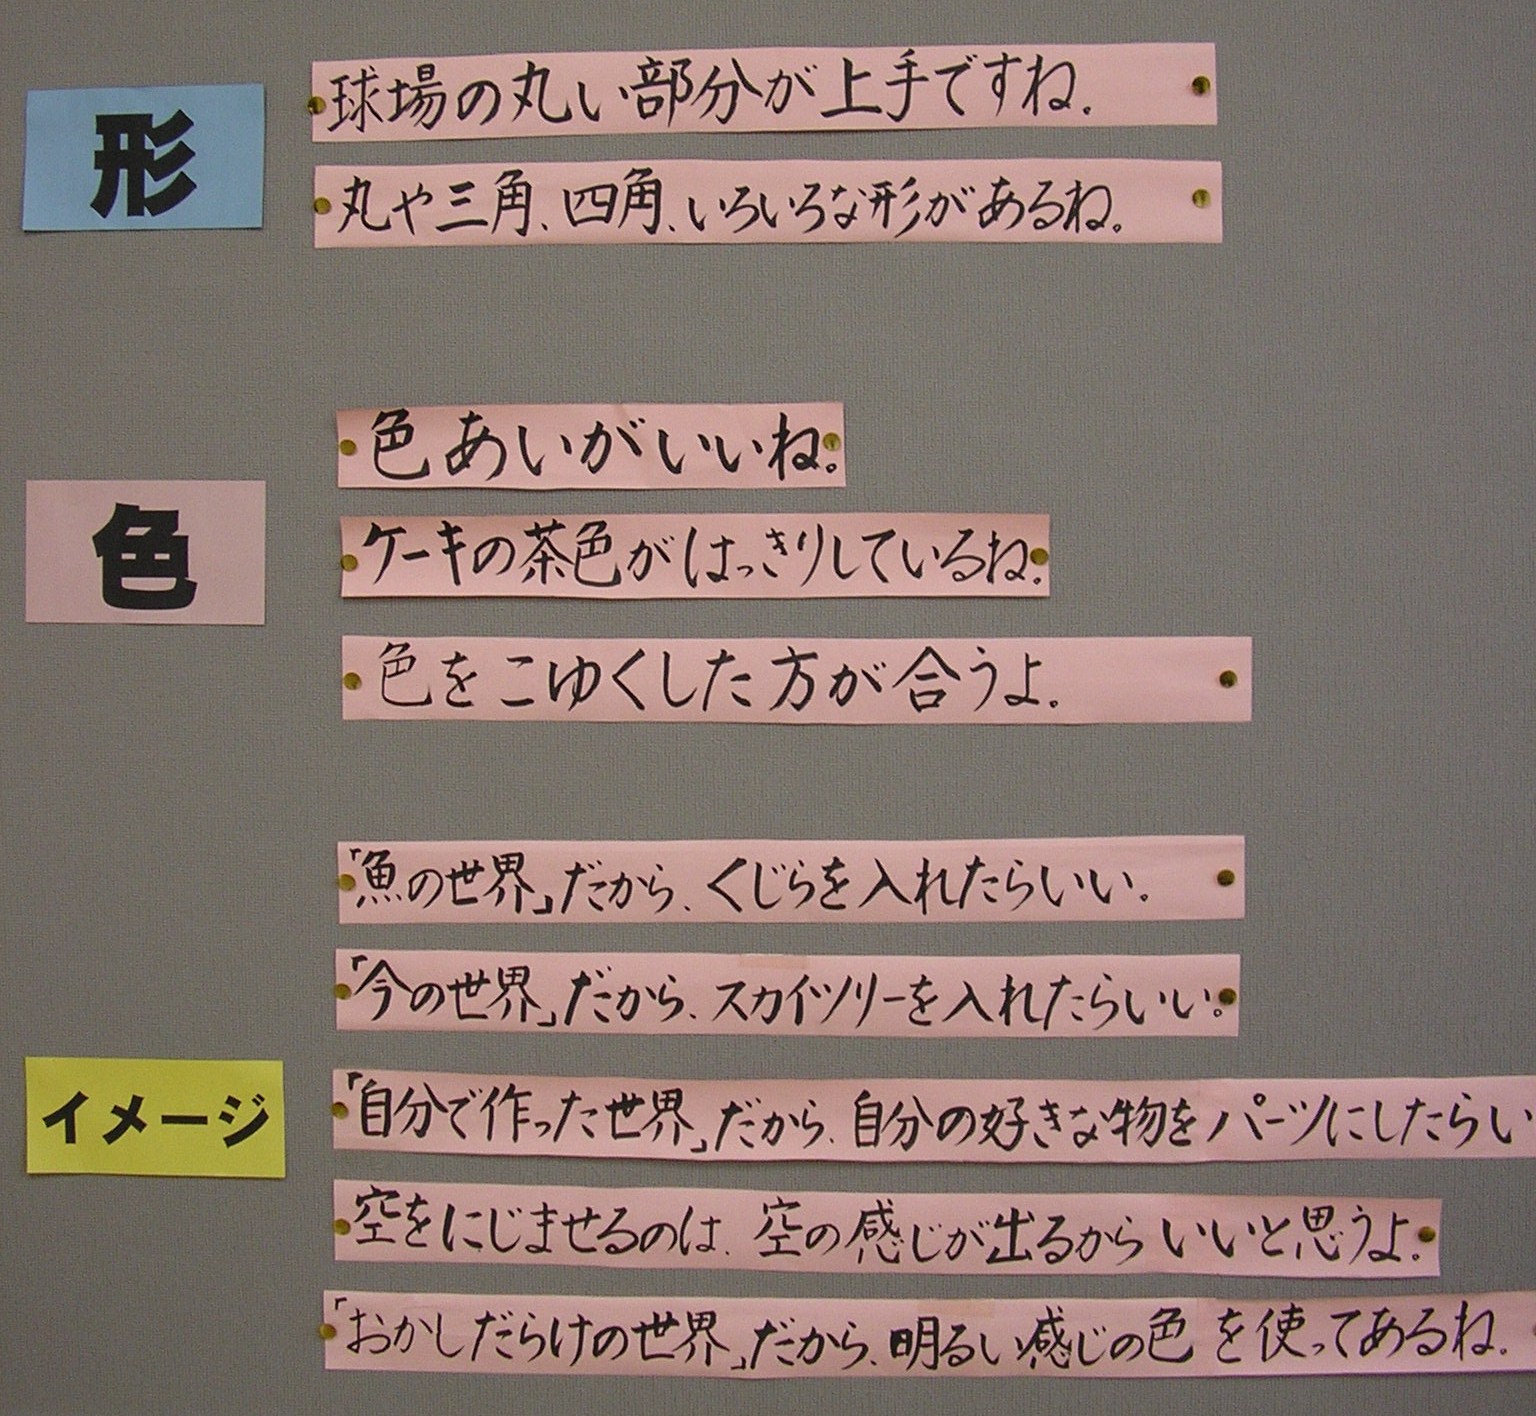 形
球場の丸い部分が上手ですね。
丸や三角、四角、いろいろな形があるね。
色
色あいがいいね。
ケーキの茶色がはっきりしているね。
色をこゆくした方が合うよ。
イメージ
「魚の世界」だから、くじらを入れたらいい。
「今の世界」だから、スカイツリーを入れたらいい。
「自分で作った世界」だから、自分の好きな物をパーツにしたらい
空をにじませるのは、空の感じが出るからいいと思うよ。
「おかしだらけの世界」だから、明るい感じの色を使ってあるね。